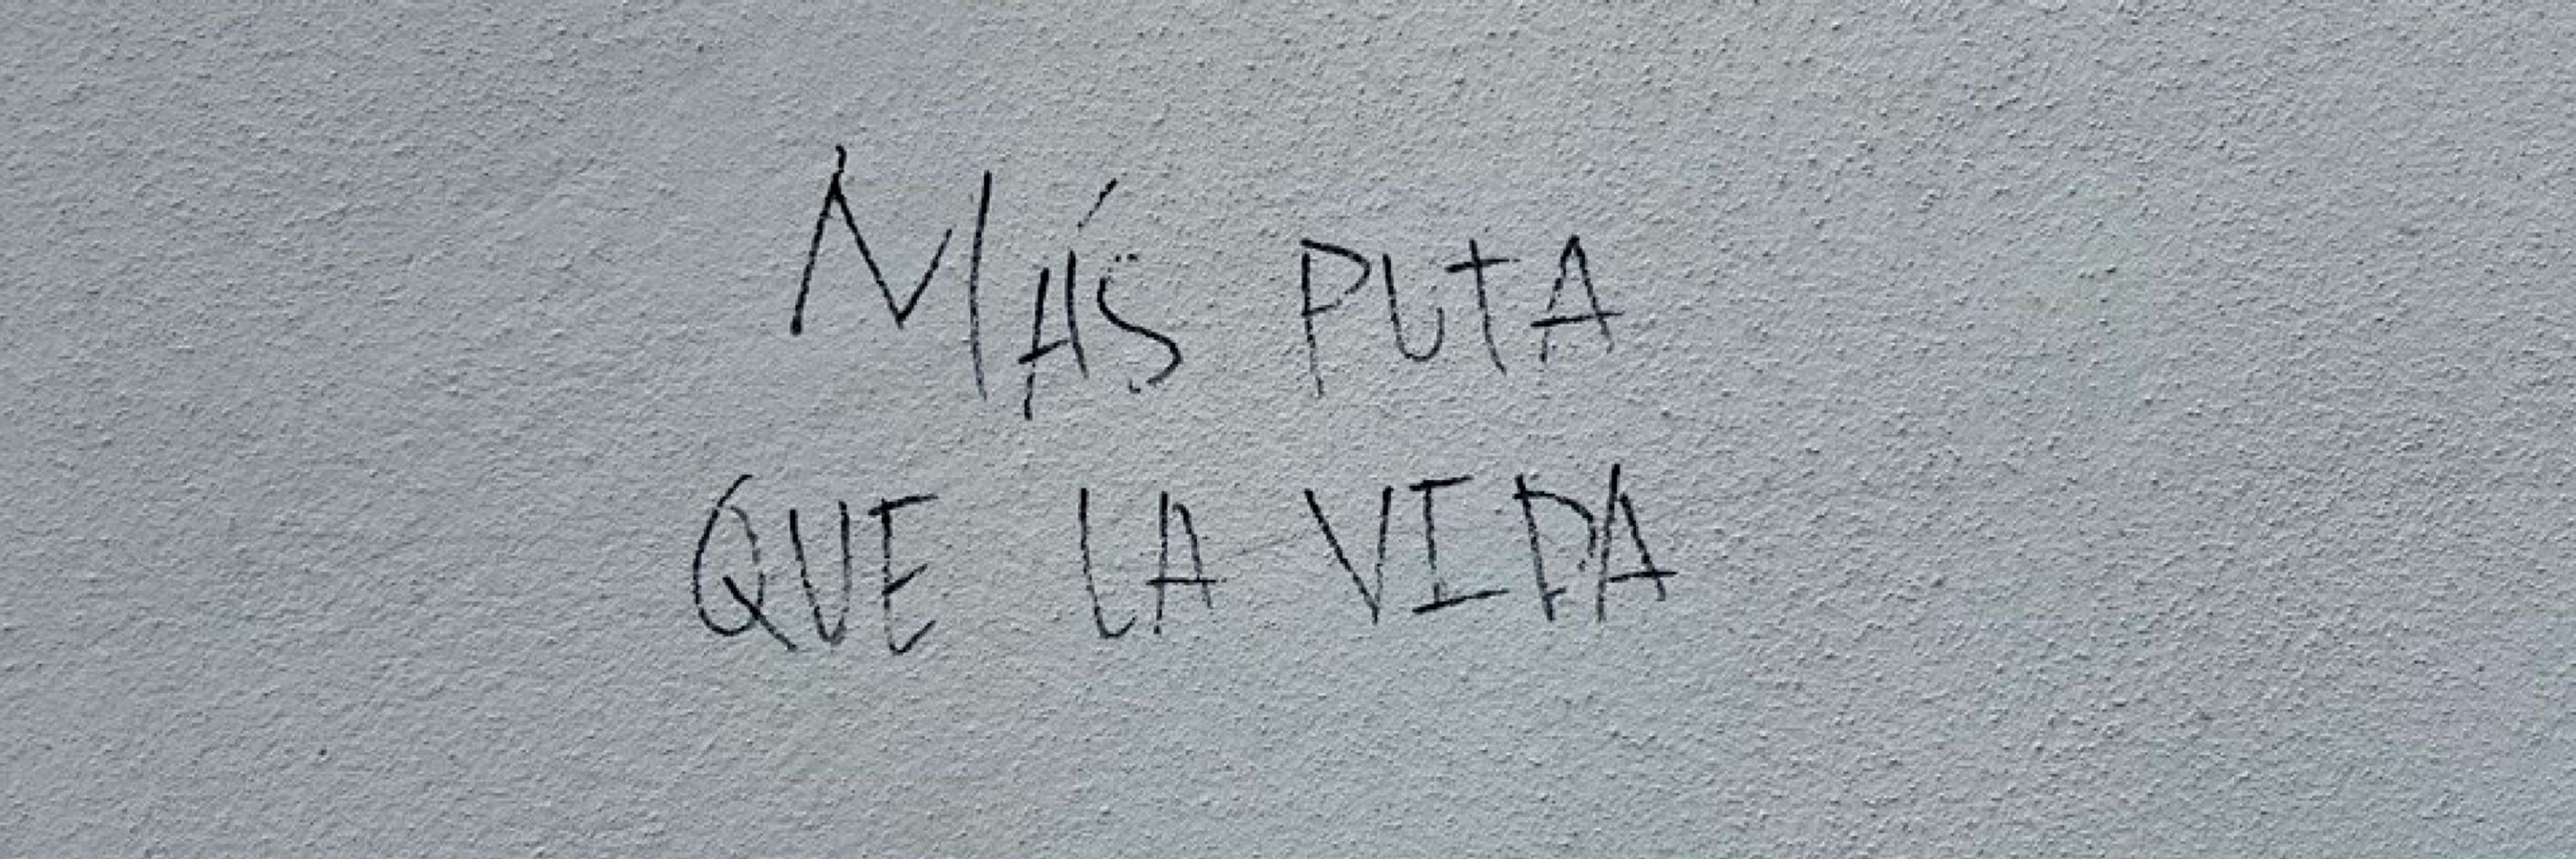 MÁS PUTA
QUE LA VIDA